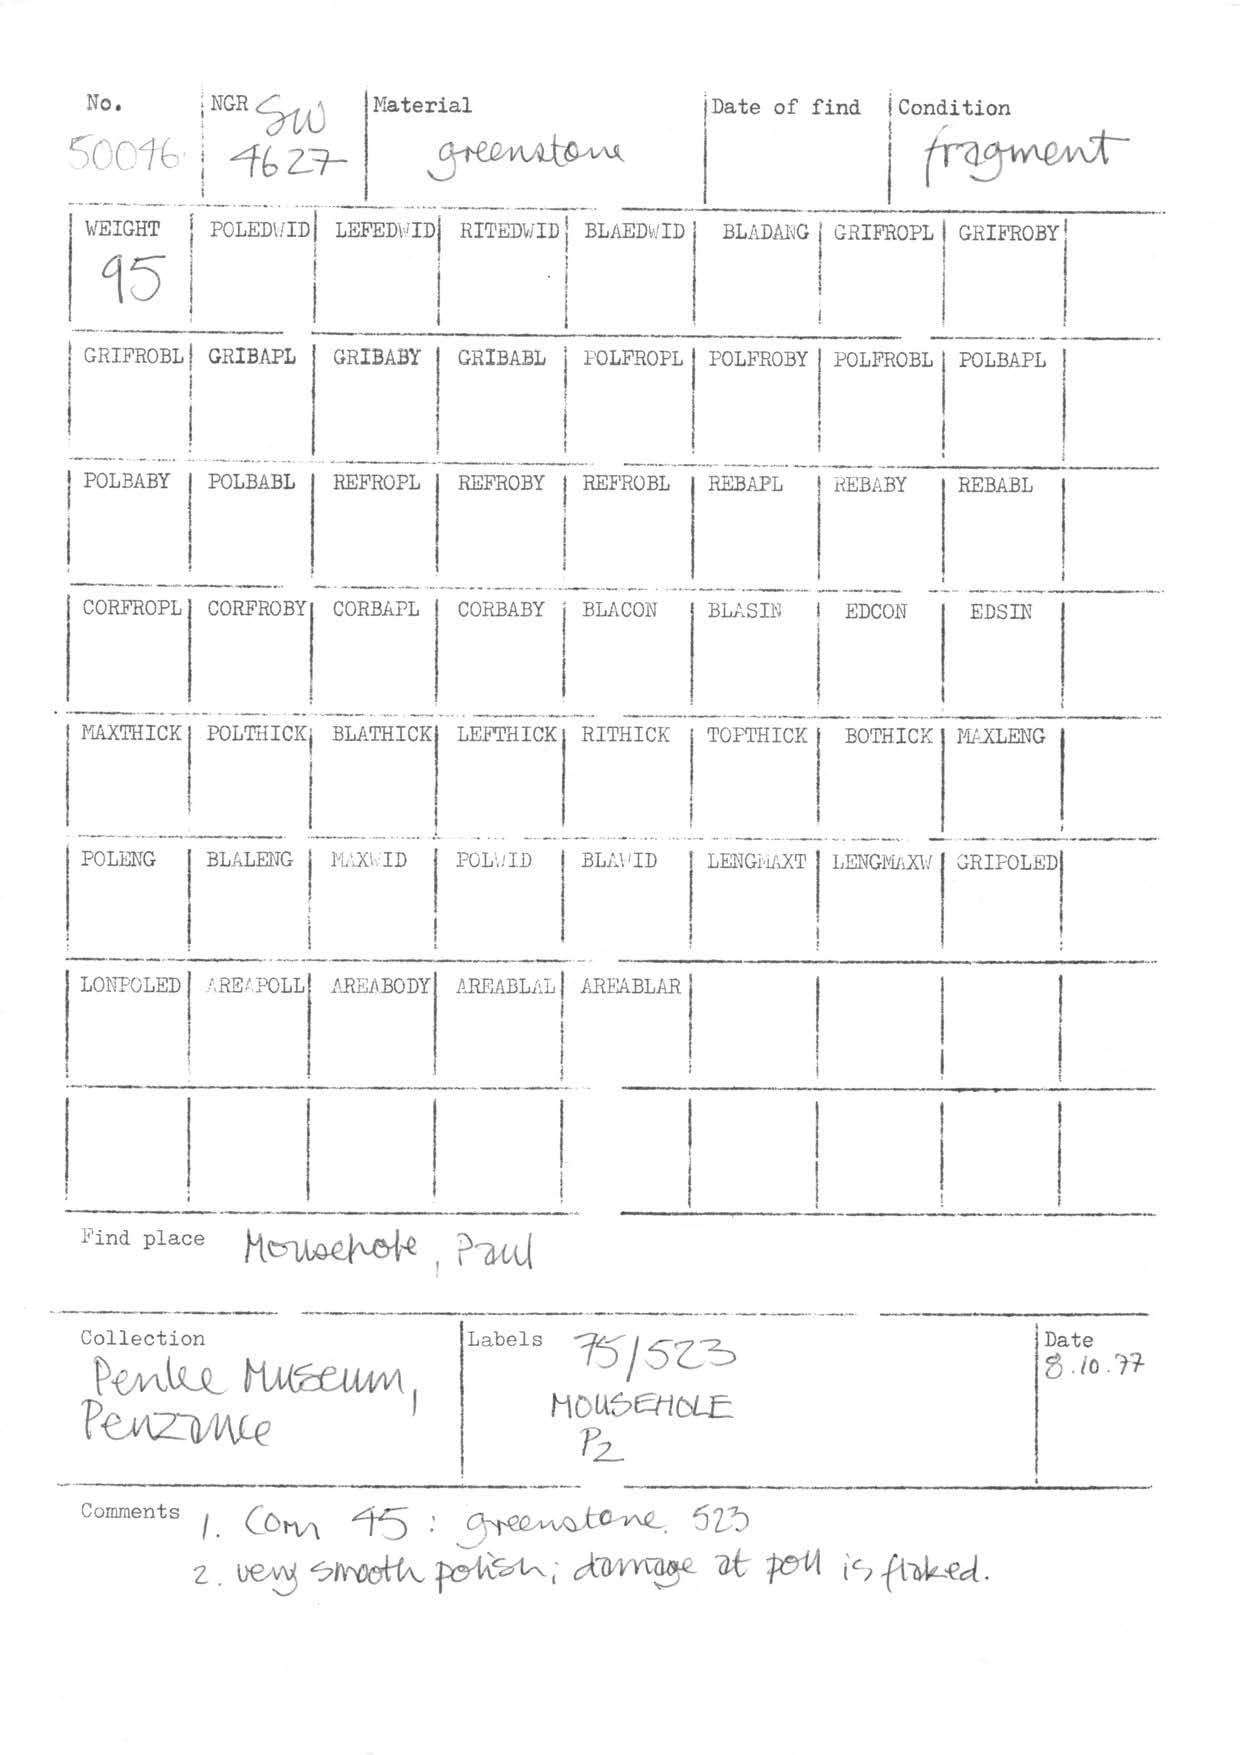 No. NGR SW Material Date of find Condition
50046 4627 greenstone fragment
WEIGHT POLEDWID LEFEDWID RITEDWID BLAEDWID BLADANG GRIFROPL GRIFROBY
95
GRIFROBL GRIBAPL GRIBABY GRIBABL POLFROPL POLFROBY POLFROBL POLBAPL
POLBABY POLBABL REFROPL REFROBY REFROBL REBAPL REBABY REBABL
CORFROPL CORFROBY CORBAPL CORBABY BLACON BLASIN EDCON EDSIN
MAXTHICK POLTHICK BLATHICK LEFTHICK RITHICK TOPTHICK BOTHICK MAXLENG
POLENG BLALENG MAXWID POLWID BLAWID LENGMAXT LENGMAXW GRIPOLED
LONPOLED AREAPOLL AREABODY AREABLAL AREABLAR
Find place Mousehole, Paul
Collection Labels 75/523 Date
Penlee Museum, 8.10.77
Penzance MOUSEHOLE
P2
Comments 1. Corn 45 : greenstone. 523
2. very smooth polish; damage at poll is flaked.